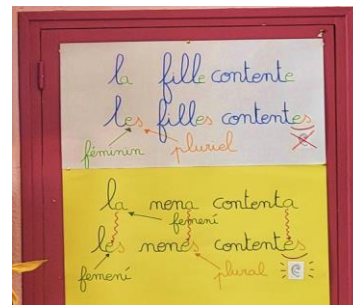 la fille contente
les filles contentes
féminin pluriel
la nena contenta
femení
les nenes contentes
femení plural